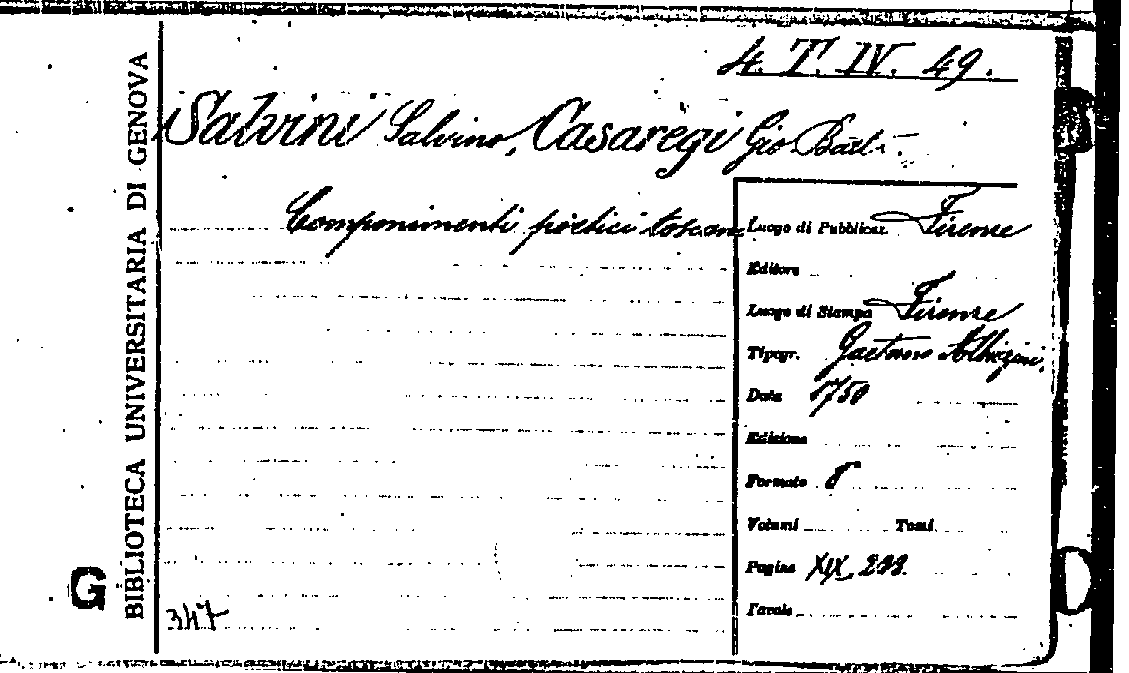 4. T. IV. 49.
Salvini Salvino, Casaregi Gio Batt.
Componimenti poetici toscani
Luogo di Pubblicaz. Firenze
Editore
Luogo di Stampa Firenze
Tipogr. Gaetano Albizzini.
Data 1750
Edizione
Formato 8
Volumi Tomi
Pagine XIX,
Tavole
347
BIBLIOTECA UNIVERSITARIA DI GENOVA
G